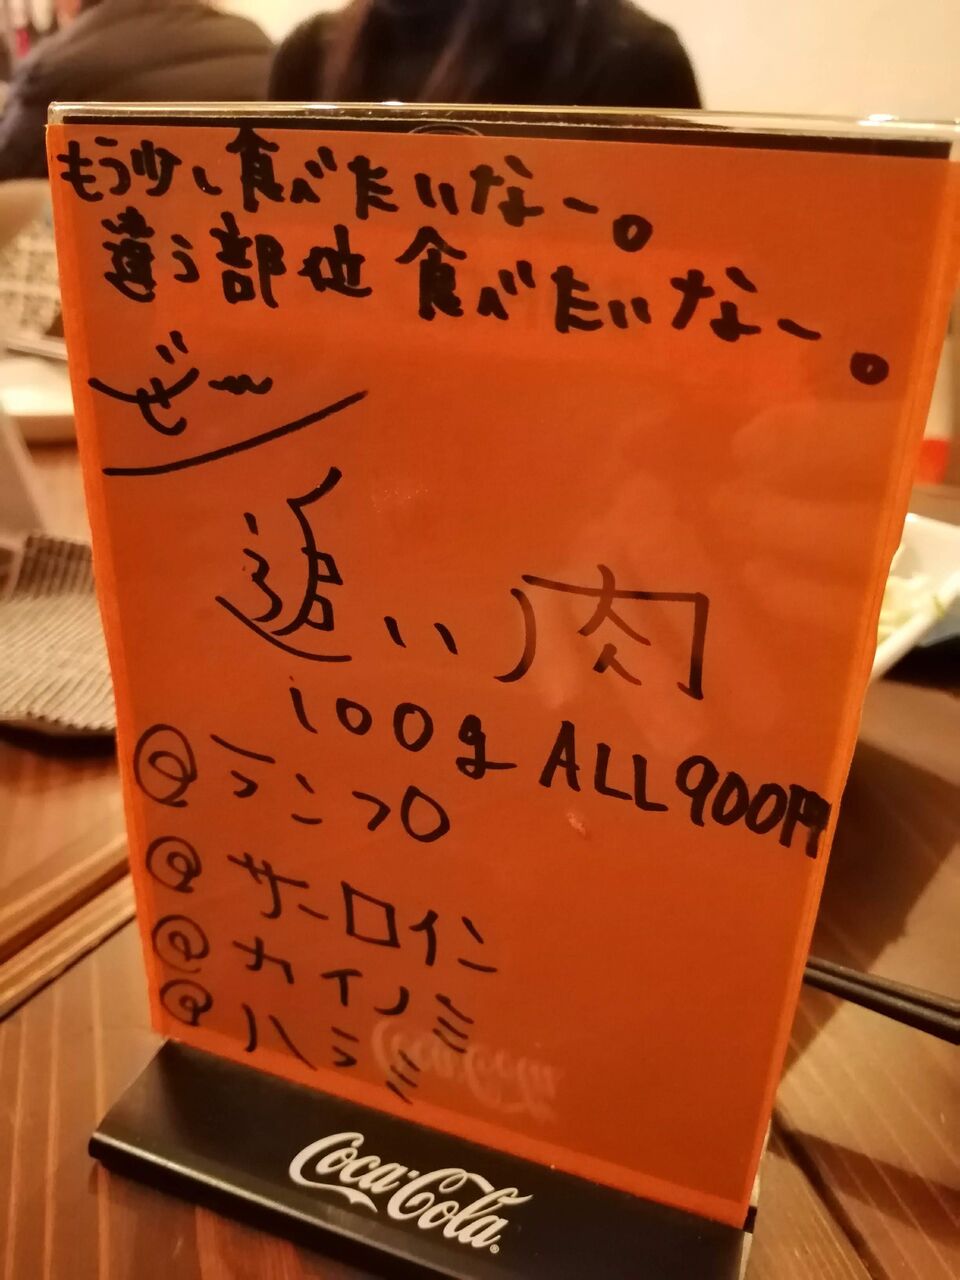 もう少し食べたいなー。
違う部位食べたいなー。
ぜー
追い肉
100g ALL900円
ランプ
サーロイン
カイノミ
ハラミ
Coca-Cola